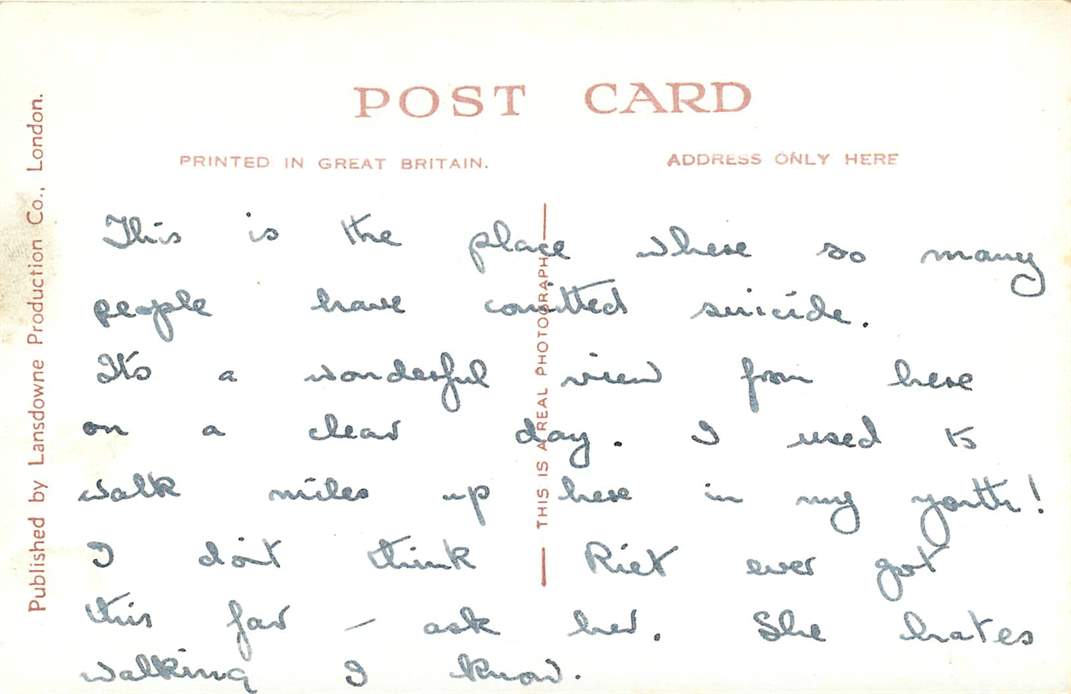 POST CARD
PRINTED IN GREAT BRITAIN.
ADDRESS ONLY HERE
Published by Lansdowne Production Co., London.
THIS IS A REAL PHOTOGRAPH
This is the place where so many
people have comitted suicide.
It's a wonderful view from here
on a clear day. I used to
walk miles up here in my youth!
I don't think Riet ever got
this far – ask her. She hates
walking I know.